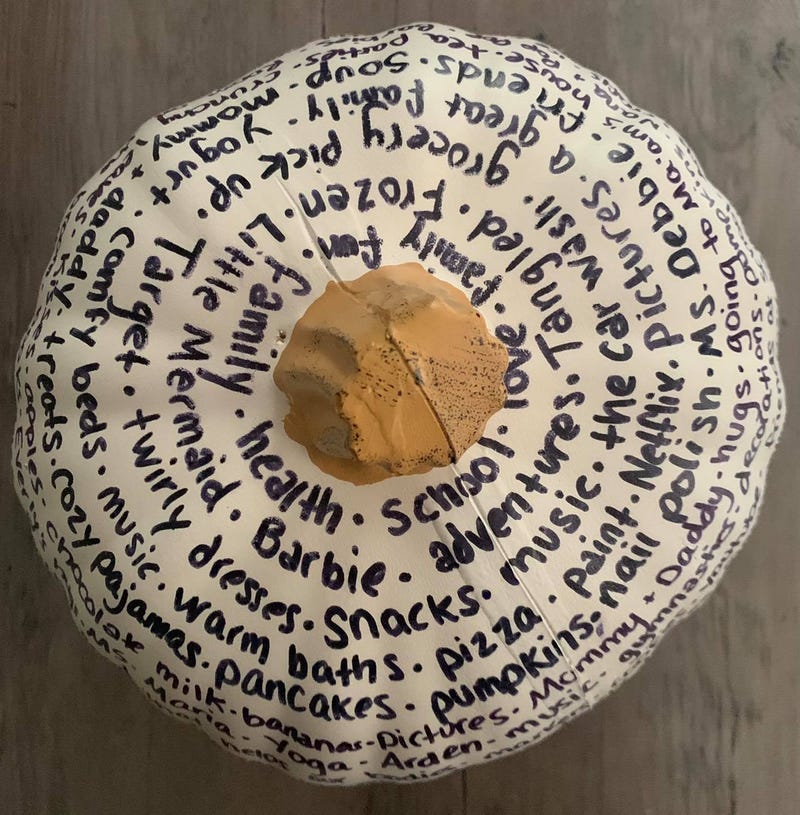 family. health. school. love. family family fun.
Little Mermaid. Barbie. adventures. Tangled. Frozen.
Target. twirly dresses. snacks. music. the car wash. grocery pick up.
comfy beds. music. warm baths. pizza. paint. Netflix. pictures. a great family. yogurt.
mommy + daddy. treats. cozy pajamas. pancakes. pumpkins. nail polish. Ms. Debbie. friends. soup.
chocolate milk. bananas. Pictures. Mommy + Daddy. hugs. going to Ma'am's house. tea parties. crunchy
Ms. Maria. Yoga. Arden. music. gymnastics. decorations.